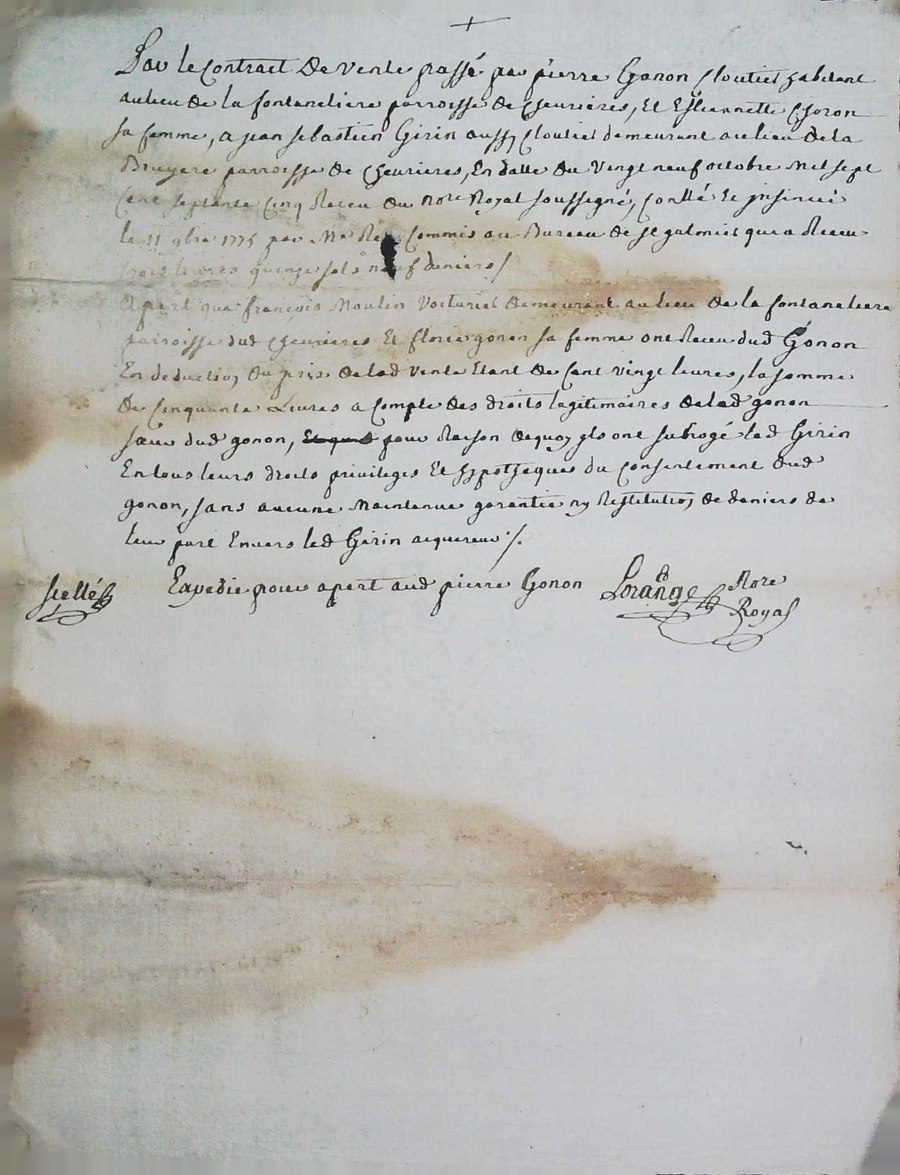 Par le Contract de vente passé par pierre Gonon Cloutier habitant
au lieu de la fontaneliere parroisse de Chevrières, Et Estiennette Choron
sa femme, a jean sebastien Girin aussy Cloutier demeurant au lieu de la
Bruyere parroisse de Chevrieres, En datte du vingt neuf octobre mil sept
Cent septante Cinq Receu du nore Royal soussigné, Conllé Et jnsinué
le 11 9bre 1775 par Me Commis au Bureau de st galmier qui a Receu
trois livres quinze sols neuf deniers /
Apert que françois Moulin Voiturier demeurant au lieu de la fontaneliere
parroisse dud Chevrieres Et florie gonon sa femme ont Receu dud Gonon
En deduction du prix de lad vente Etant de Cent vingt livres, la somme
de Cinquante Livres a Compte des droits legitimaires de lad gonon
sœur dud gonon, pour Raison dequoy jls ont subrogé led Girin
En tous leurs droits privileges Et hypotheques du Consentement dud
gonon, sans aucune Maintenue garantie ny Restitution de deniers de
leur part Envers led Girin acquereur /.
scellé Expedié pour apert aud pierre Gonon Lorange Nore
Royal